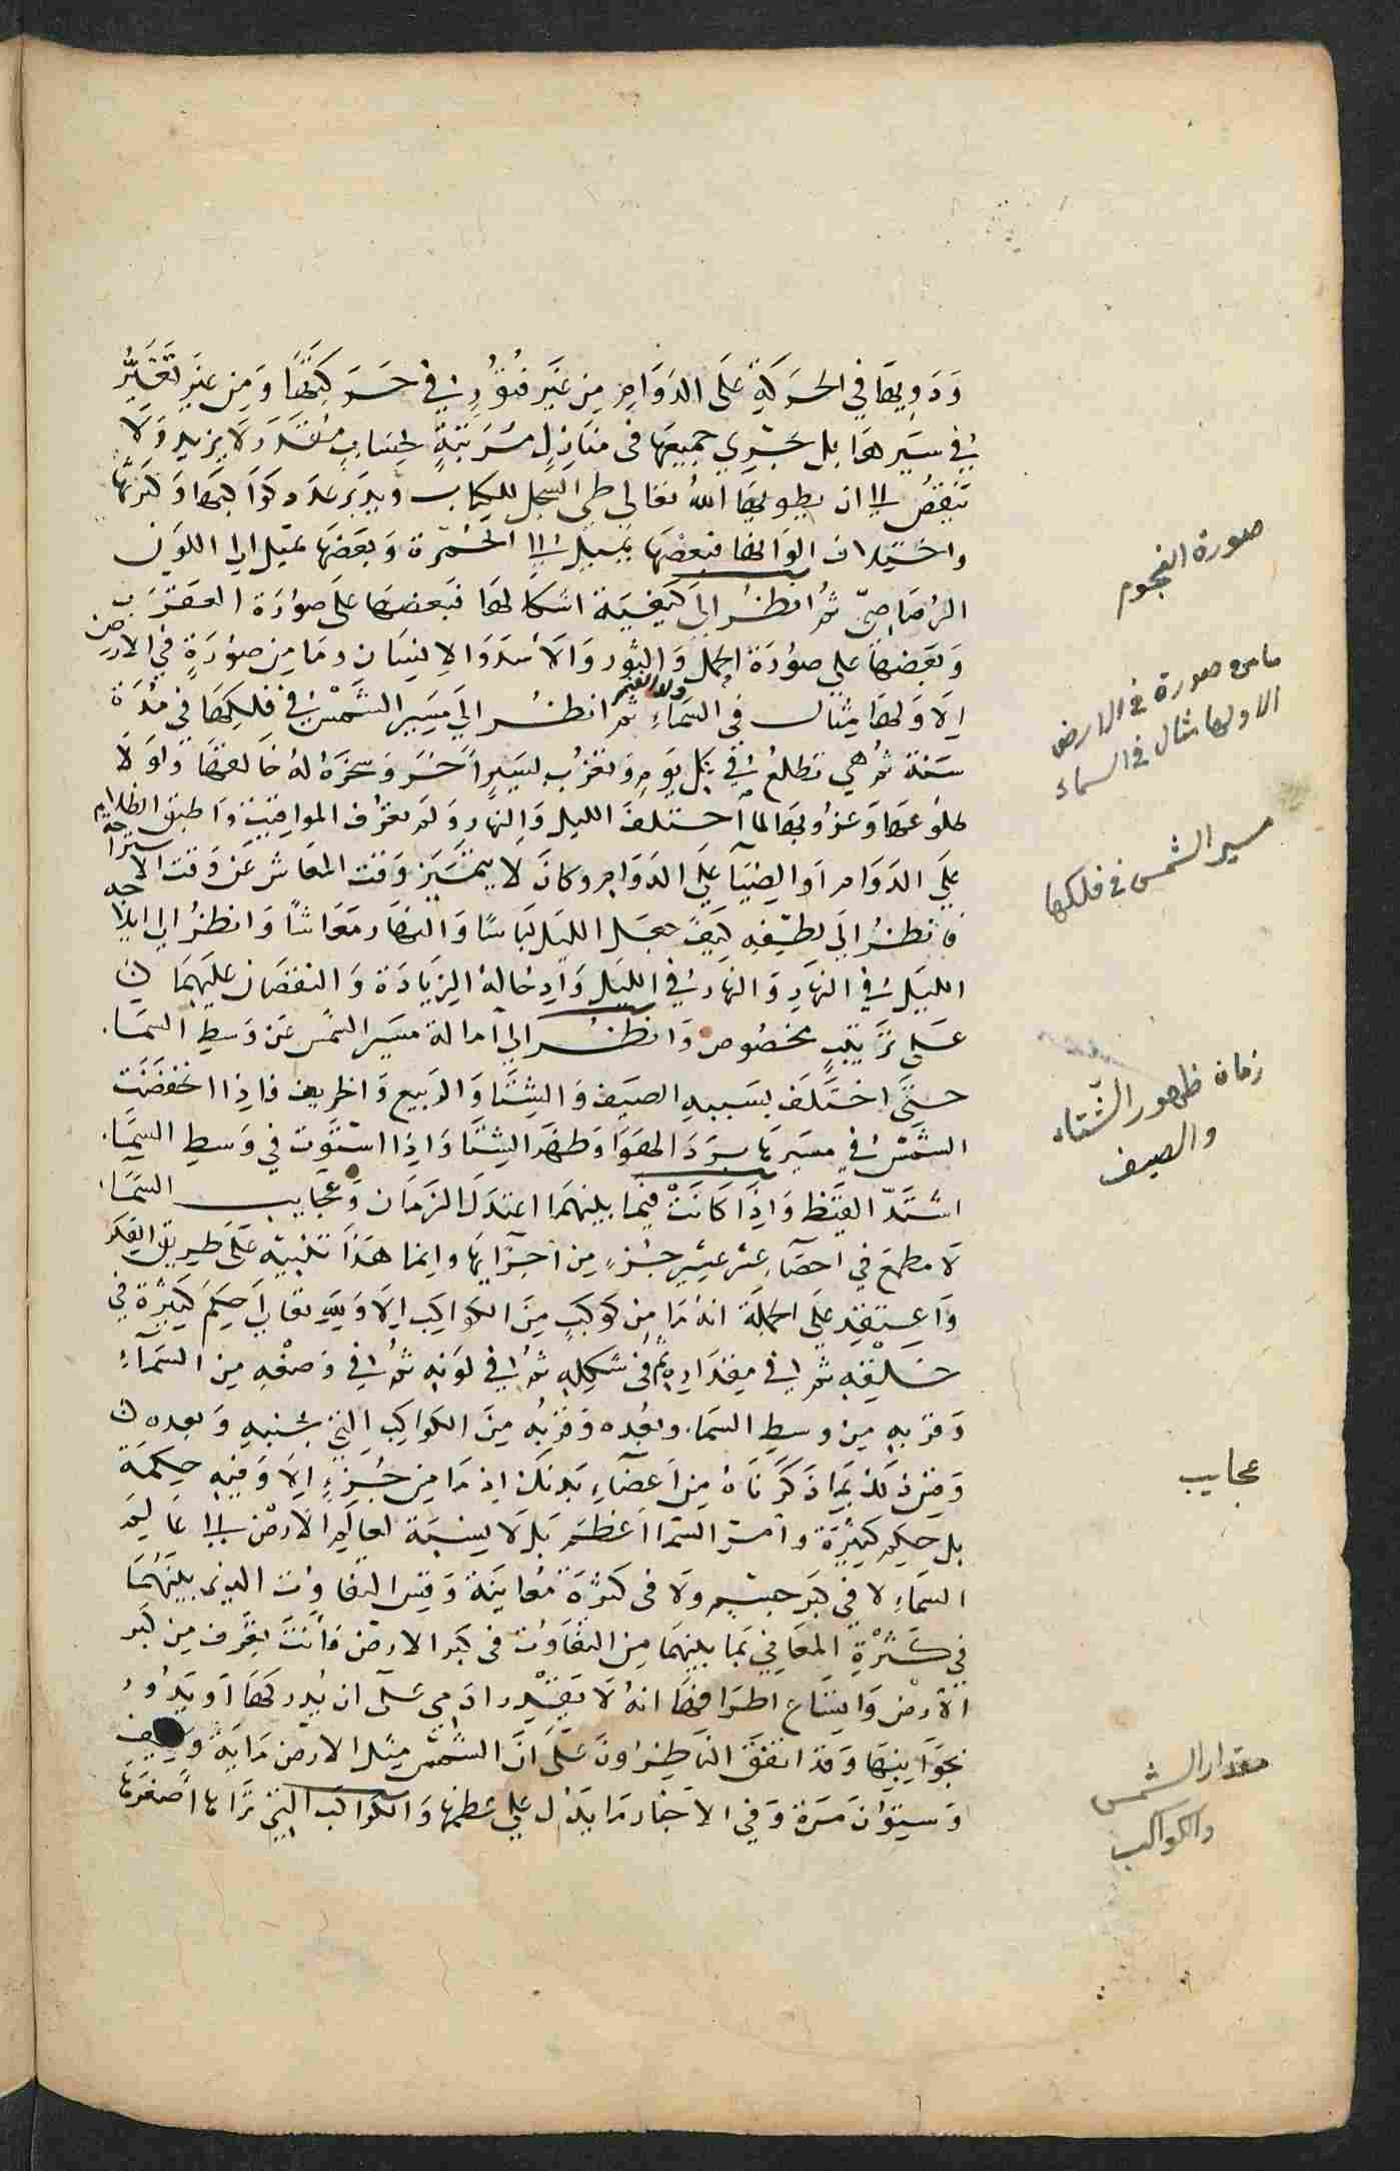 ودوبها في الحركة على الدوام من غير فتور في حركتها ومن غير تغير
في سيرها بل تجري جميعها في منازل مرتبة بحساب مقدر لا يزيد ولا
ينقص الى ان يطويها الله تعالى طي السجل للكتاب وتدبر عدد كواكبها وكثرتها
واختلاف الوانها فبعضها يميل الى الحمرة وبعضها يميل الى اللون
الرصاصي ثم انظر الى كيفية اشكالها فبعضها على صورة العقرب
وبعضها على صورة الحمل والثور والأسد والانسان وما من صورة في الارض
الا ولها مثال في السماء ثم انظر الى مسير الشمس في فلكها في مدة
سنة ثم هي تطلع في كل يوم وتغرب بسير آخر وسخره له خالقها ولولا
طلوعها وغروبها لما اختلف الليل والنهار ولم تعرف المواقيت واطبق الظلام
على الدوام او الضيآ على الدوام وكان لا يتميز وقت المعاش عن وقت الاستراحة
فانظر الى لطيفه كيف جعل الليل لباسا والنهار معاشا وانظر الى ايلاجه
الليل في النهار والنهار في الليل وادخاله الزيادة والنقصان عليهما
على ترتيب مخصوص وانظر الى امالة مسير الشمس عن وسط السما
حتى اختلف بسببه الصيف والشتا والربيع والخريف فاذا انخفضت
الشمس في مسيرها برد الهوا وظهر الشتا واذا استوت في وسط السما
اشتد القيظ واذا كانت فيما بينهما اعتدل الزمان وعجايب السما
لا مطمع في احصآء عشر عشير جزء من اجزايها وانما هذا تنبيه على طريق الفكر
واعتقد على الجملة انه ما من كوكب من الكواكب الا ولله تعالى حكم كثيرة في
خلقه ثم في مقداره ثم في شكله ثم في لونه ثم في وضعه من السمآء
وقربه من وسط السما وبعده وقربه من الكواكب التي بجنبه وبعده
وقس ذلك بما ذكرناه من اعضآء بدنك اذ ما من جزء الا وفيه حكمة
بل حكم كثيرة وامر السما اعظم بل لا نسبة لعالم الارض الى عالم
السماء لا في كبر جسم ولا في كثرة معاينة وقس التفاوت الذي بينهما
في كثرة المعاني بما بينهما من التفاوت في كبر الارض فأنت تعرف من كبر
الأرض واتساع اطرافها انه لا يقدر ادمي على ان يدركها او يدور
بجوانبها وقد اتفق الناظرون على ان الشمس مثل الارض ماية ونيف
وستون مرة وفي الاخبار ما يدل على عظمها والكواكب التي تراها اصغرها
صورة النجوم
ما من صورة في الارض
الا ولها مثال في السماء
مسير الشمس في فلكها
زمان ظهور الشتاء
والصيف
عجايب
مقدار الشمس
والكواكب